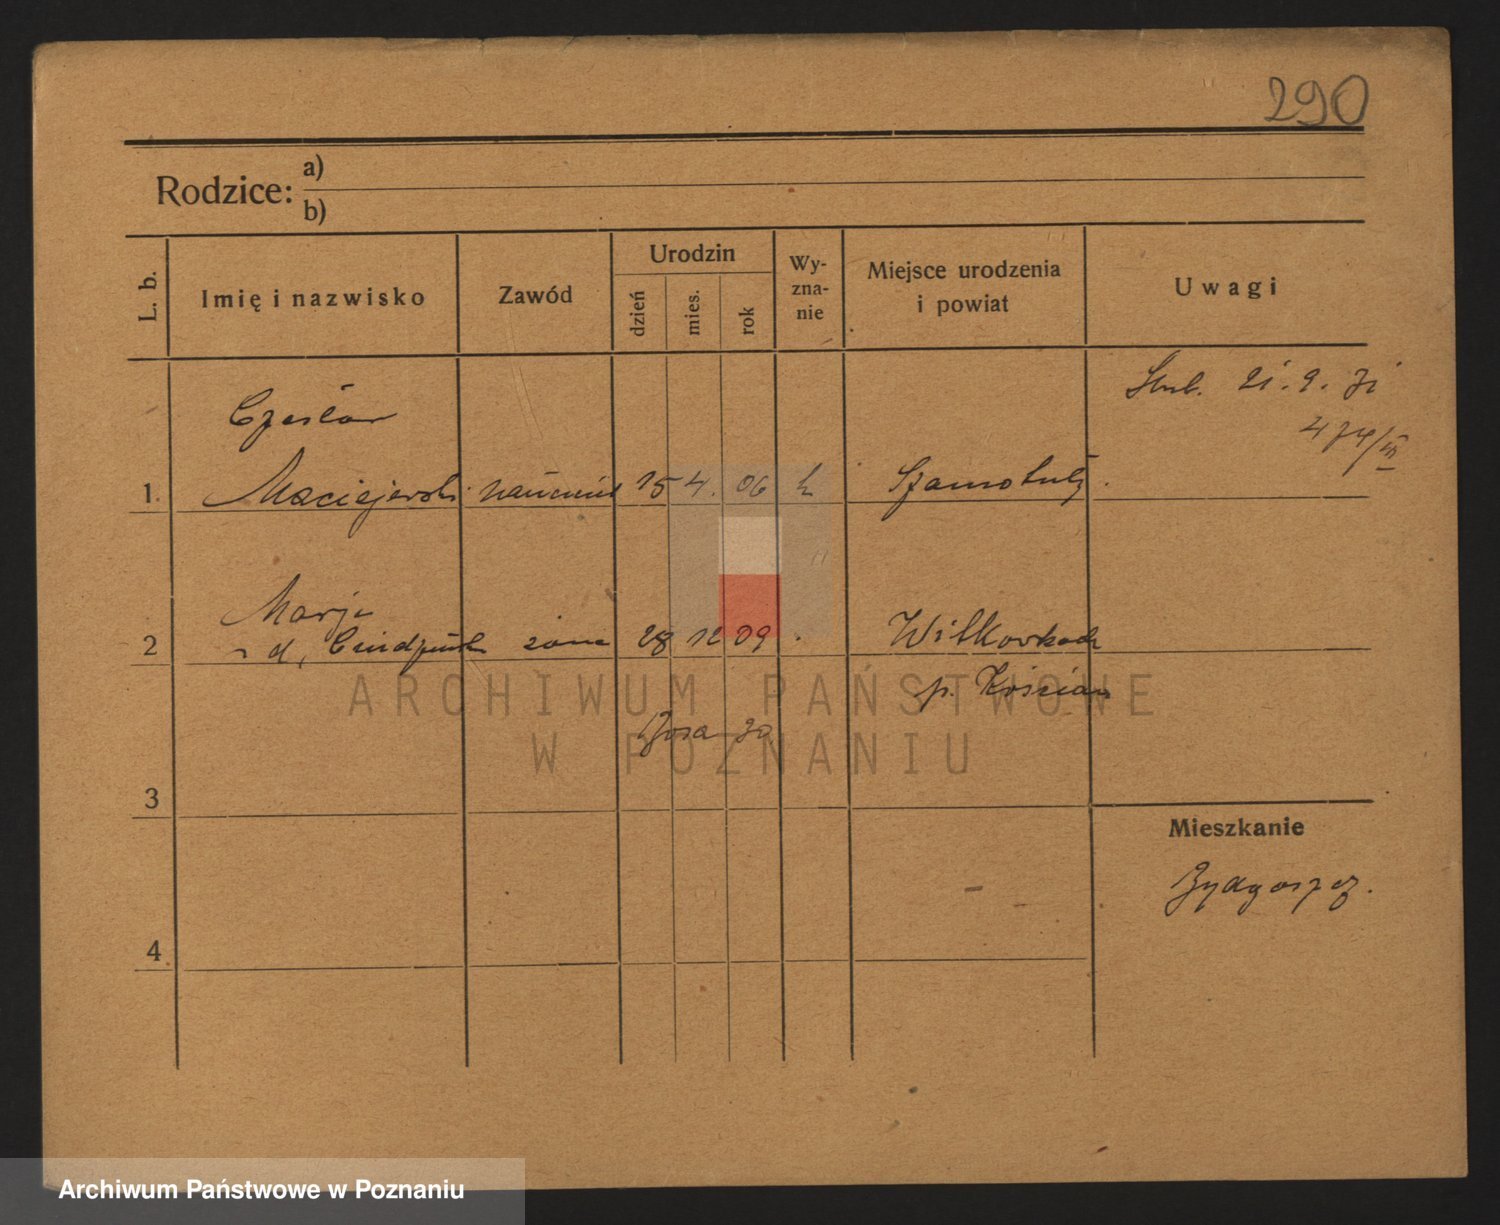 290
Rodzice: a)
b)
L. b.
Imię i nazwisko
Zawód
Urodzin
dzień
mies.
rok
Wy-
zna-
nie
Miejsce urodzenia
i powiat
Uwagi
Czesław
21. 9. 31
1. Maciejewski 15 4. 06 k Szamotuły.
Marja
2 żona 28 12 09
p. Kościan
30
3
Mieszkanie
Bydgoszcz.
4
ARCHIWUM PAŃSTWOWE
W POZNANIU
Archiwum Państwowe w Poznaniu